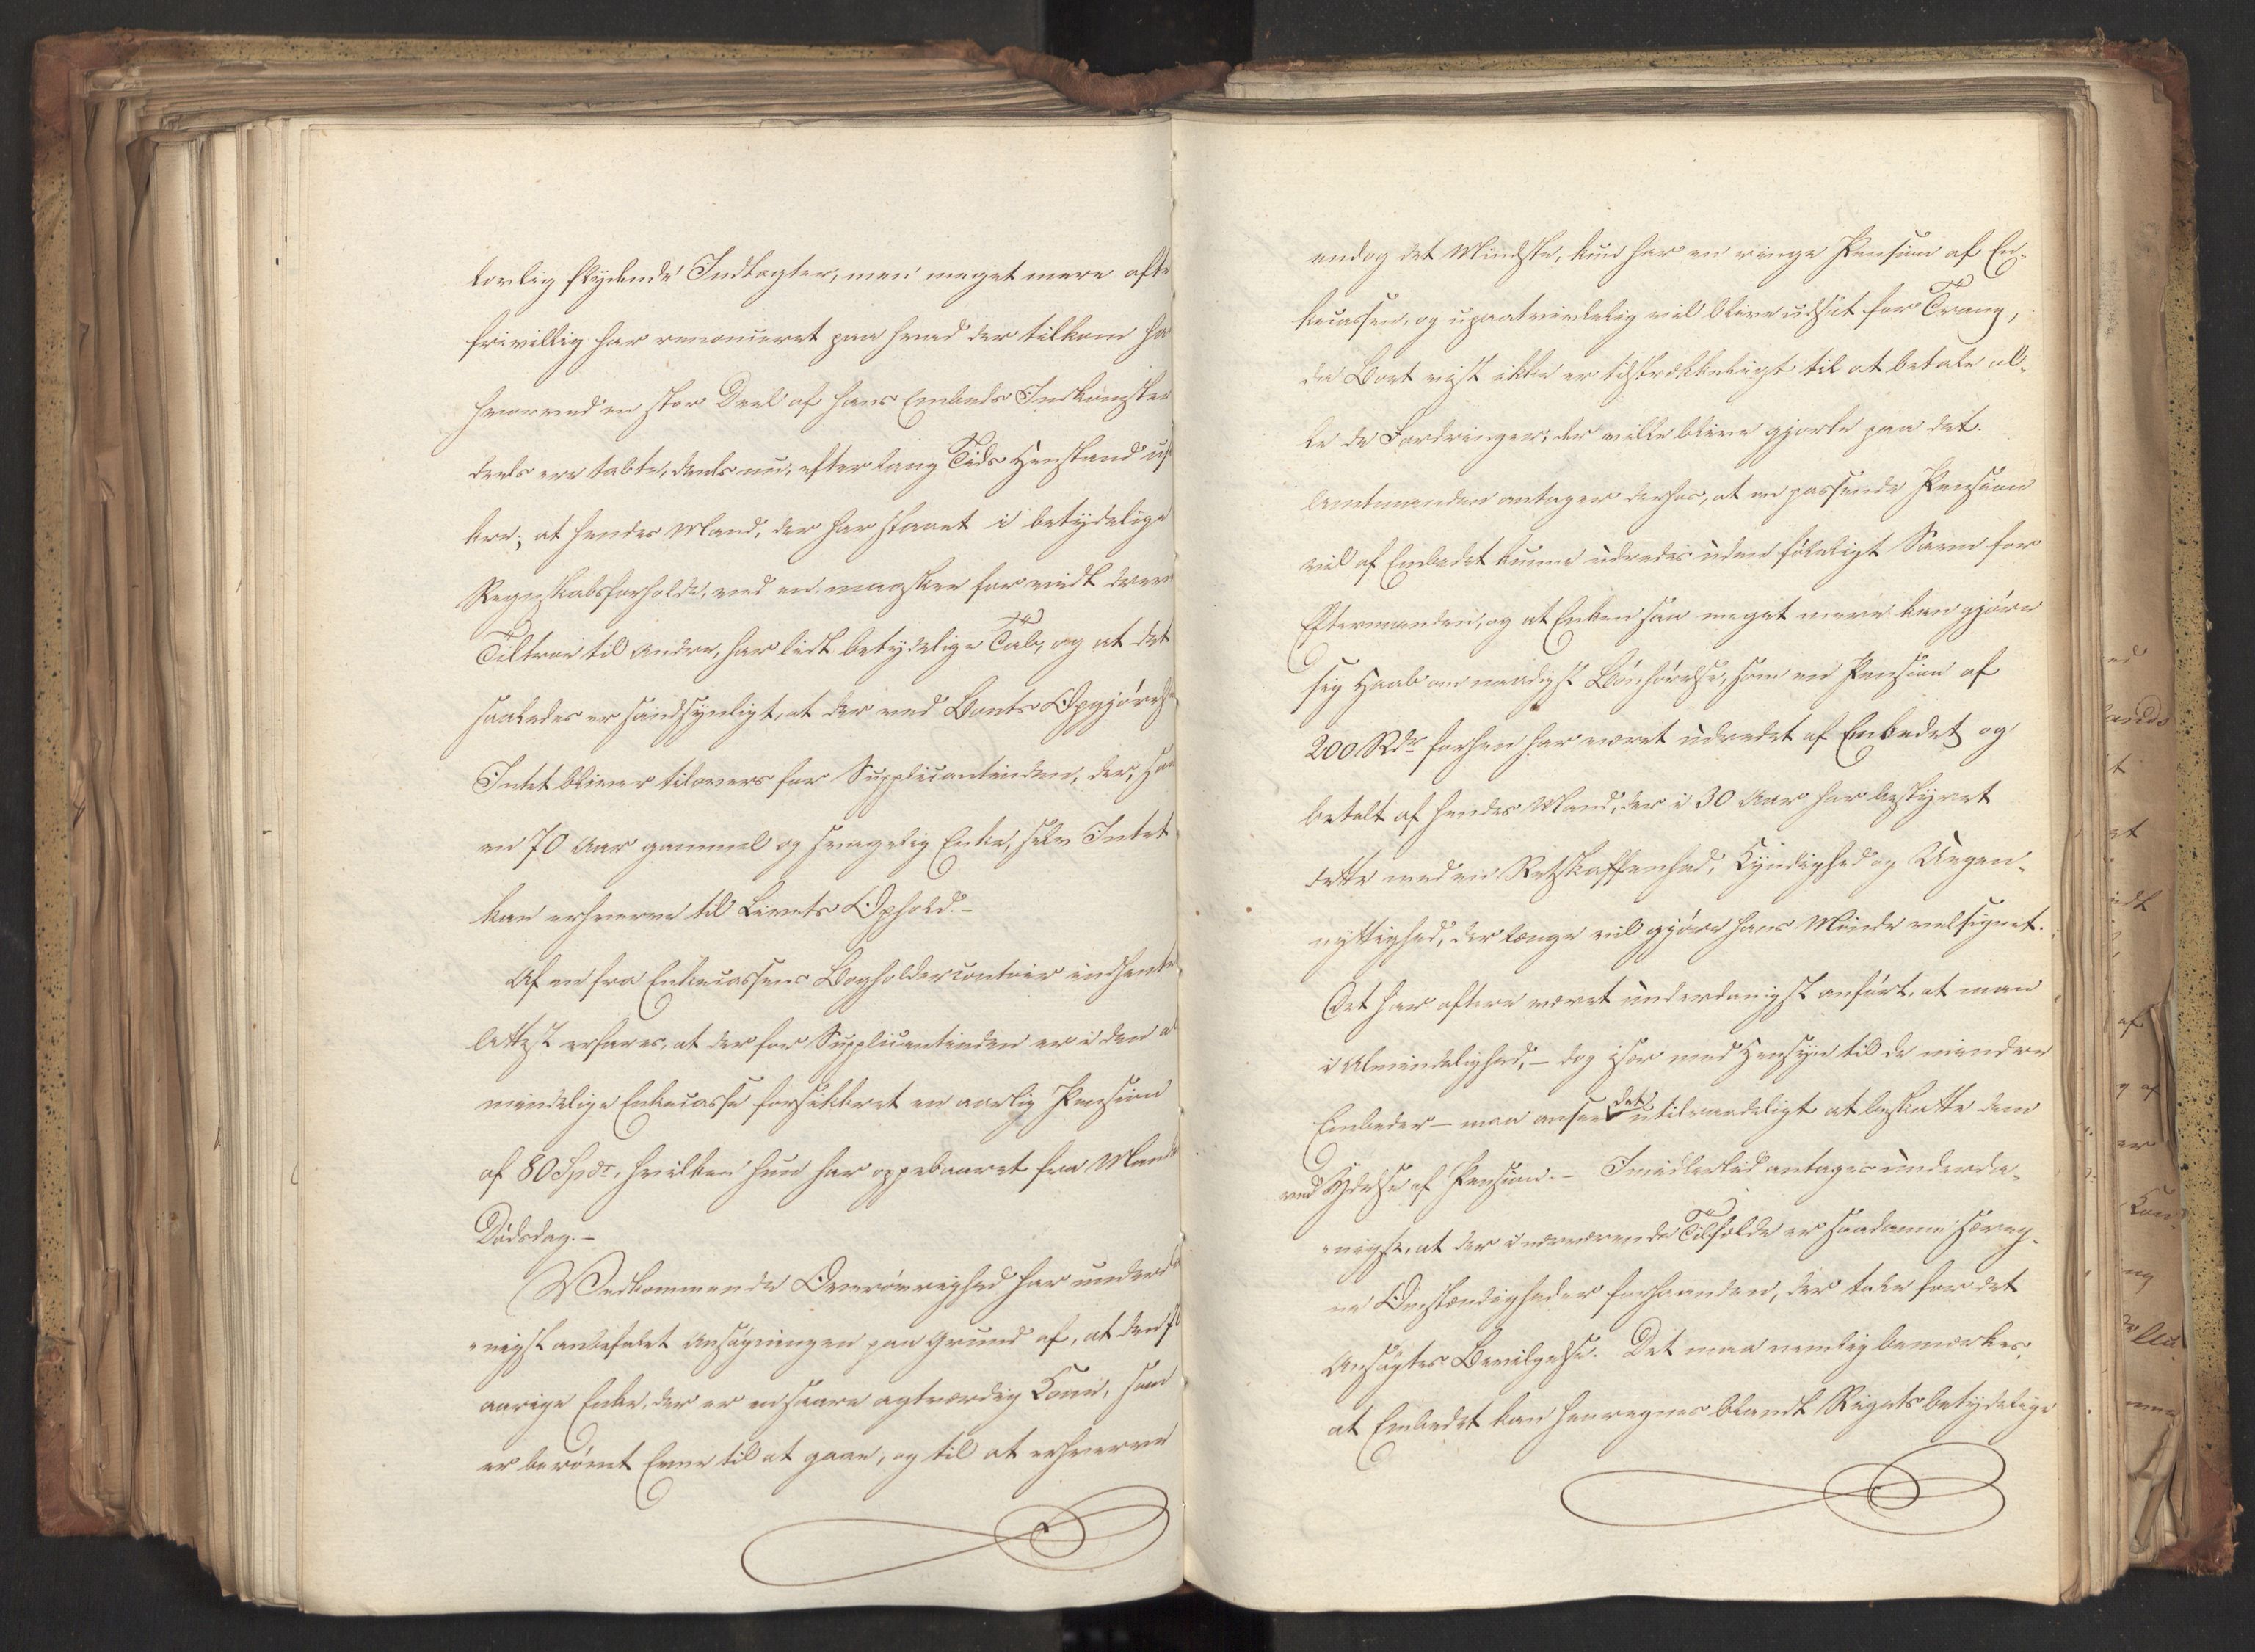 lovlig flydende Indtægter, men meget mere ofte
frivillig har renonceret paa hvad der tilkom ha
hvorved en stor Deel af hans Embeds Indkomster
deels ere tabte, deels nu, efter lang Tids Henstand us
kre; at hendes Mand, der har staaet i betydelige
Regnskabsforholde, ved en maaskee for vidt dreven
Tiltroe til Andre, har lidt betydelige Tab, og at det
saaledes er sandsynligt, at der ved Boets Opgjørelse
Intet bliver tilovers for Supplicantinden, der, som
en 70 Aar gammel og svagelig Enke, selv Intet
kan erhverve til Livets Ophold.-
Af en fra Enkecassens Bogholdercontoir indhente
Attest erfares, at der for Supplicantinden er i den a
mindelige Enkecasse forsikkret en aarlig Pension
af 80 Spdr, hvilken hun har oppebaaret fra Mands
Dødsdag.-
Vedkommende Overøvrighed har underda
nigst anbefalet Ansøgningen paa Grund af, at den 7
aarige Enke, der er en saare agtværdig Kone, som
er berøvet Evne til at gaae, og til at erhverve
endog det Mindste, kun har en ringe Pension af En-
kecassen, og upaatvivlelig vil blive udsat for Trang,
da Boet vist ikke er tilstrækkeligt til at betale al-
le de Fordringer, der ville blive gjorte paa det.
Amtmanden antager derhos, at en passende Pension
vil af Embedet kunne udredes uden føleligt Savn for
Eftermanden, og at Enken saa meget mere kan gjøre
sig Haab om naadigst Bønhørelse, som en Pension af
200 Rdr forhen har været udredet af Embedet og
betalt af hendes Mand, der i 30 Aar har bestyret
dette med en Retskaffenhed, Kyndighed og Uegen-
nyttighed, der længe vil gjøre hans Minde velsignet.
Det har oftere været underdanigst anført, at man
i Almindelighed, - dog især med Hensyn til de mindre
Embeder - maa ansee det utilraadeligt at beskatte dem
ved Ydelse af Pension. - Imidlertid antages underda-
nigst, at der i nærværende Tilfælde er saadanne særeg-
ne Omstændigheder forhaanden, der tale for det
Ansøgtes Bevilgelse. Det maa nemlig bemærkes,
at Embedet kan henregnes blandt Rigets betydelige